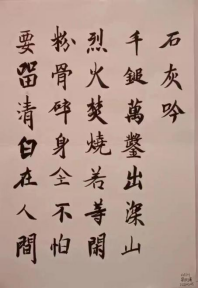 石灰吟
千鎚萬鑿出深山
烈火焚燒若等閑
粉骨碎身全不怕
要留清白在人間